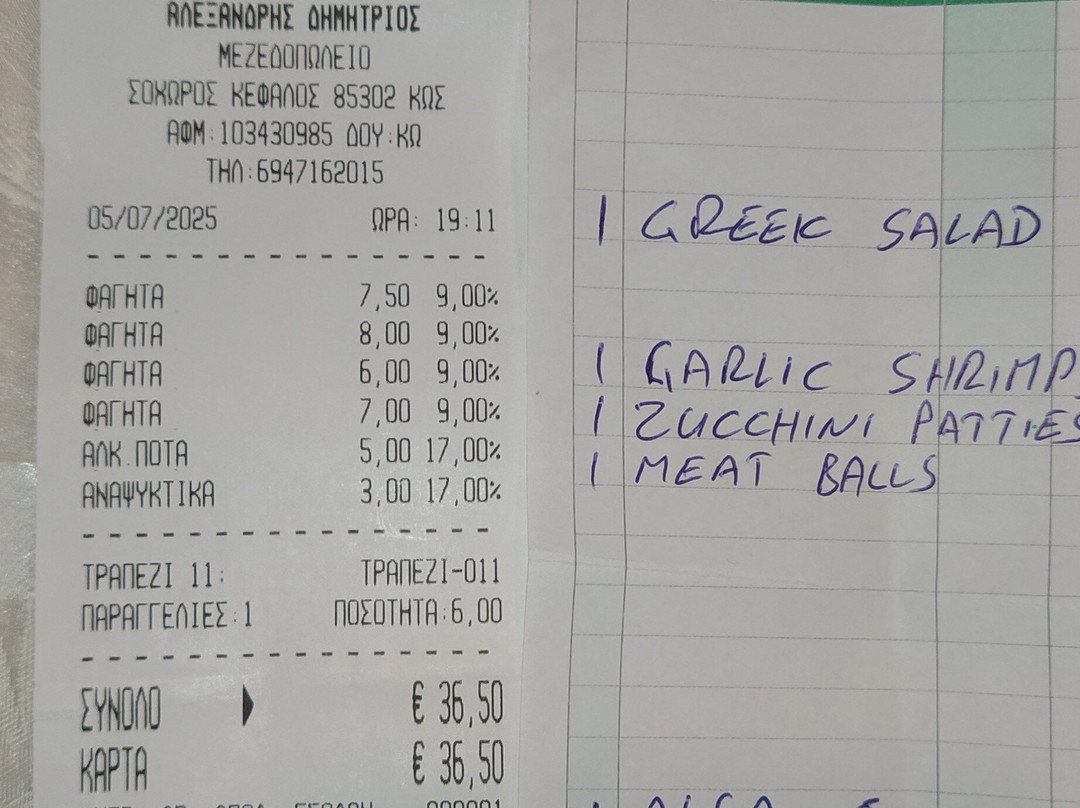 ΑΛΕΞΑΝΔΡΗΣ ΔΗΜΗΤΡΙΟΣ
ΜΕΖΕΔΟΠΩΛΕΙΟ
ΣΟΧΩΡΟΣ ΚΕΦΑΛΟΣ 85302 ΚΩΣ
ΑΦΜ:103430985 ΔΟΥ:ΚΩ
ΤΗΛ:6947162015
05/07/2025 ΩΡΑ: 19:11
ΦΑΓΗΤΑ 7,50 9,00%
ΦΑΓΗΤΑ 8,00 9,00%
ΦΑΓΗΤΑ 6,00 9,00%
ΦΑΓΗΤΑ 7,00 9,00%
ΑΛΚ.ΠΟΤΑ 5,00 17,00%
ΑΝΑΨΥΚΤΙΚΑ 3,00 17,00%
ΤΡΑΠΕΖΙ 11: ΤΡΑΠΕΖΙ-011
ΠΑΡΑΓΓΕΛΙΕΣ:1 ΠΟΣΟΤΗΤΑ:6,00
ΣΥΝΟΛΟ € 36,50
ΚΑΡΤΑ € 36,50
1 GREEK SALAD
1 GARLIC SHRIMP
1 ZUCCHINI PATTIES
1 MEAT BALLS